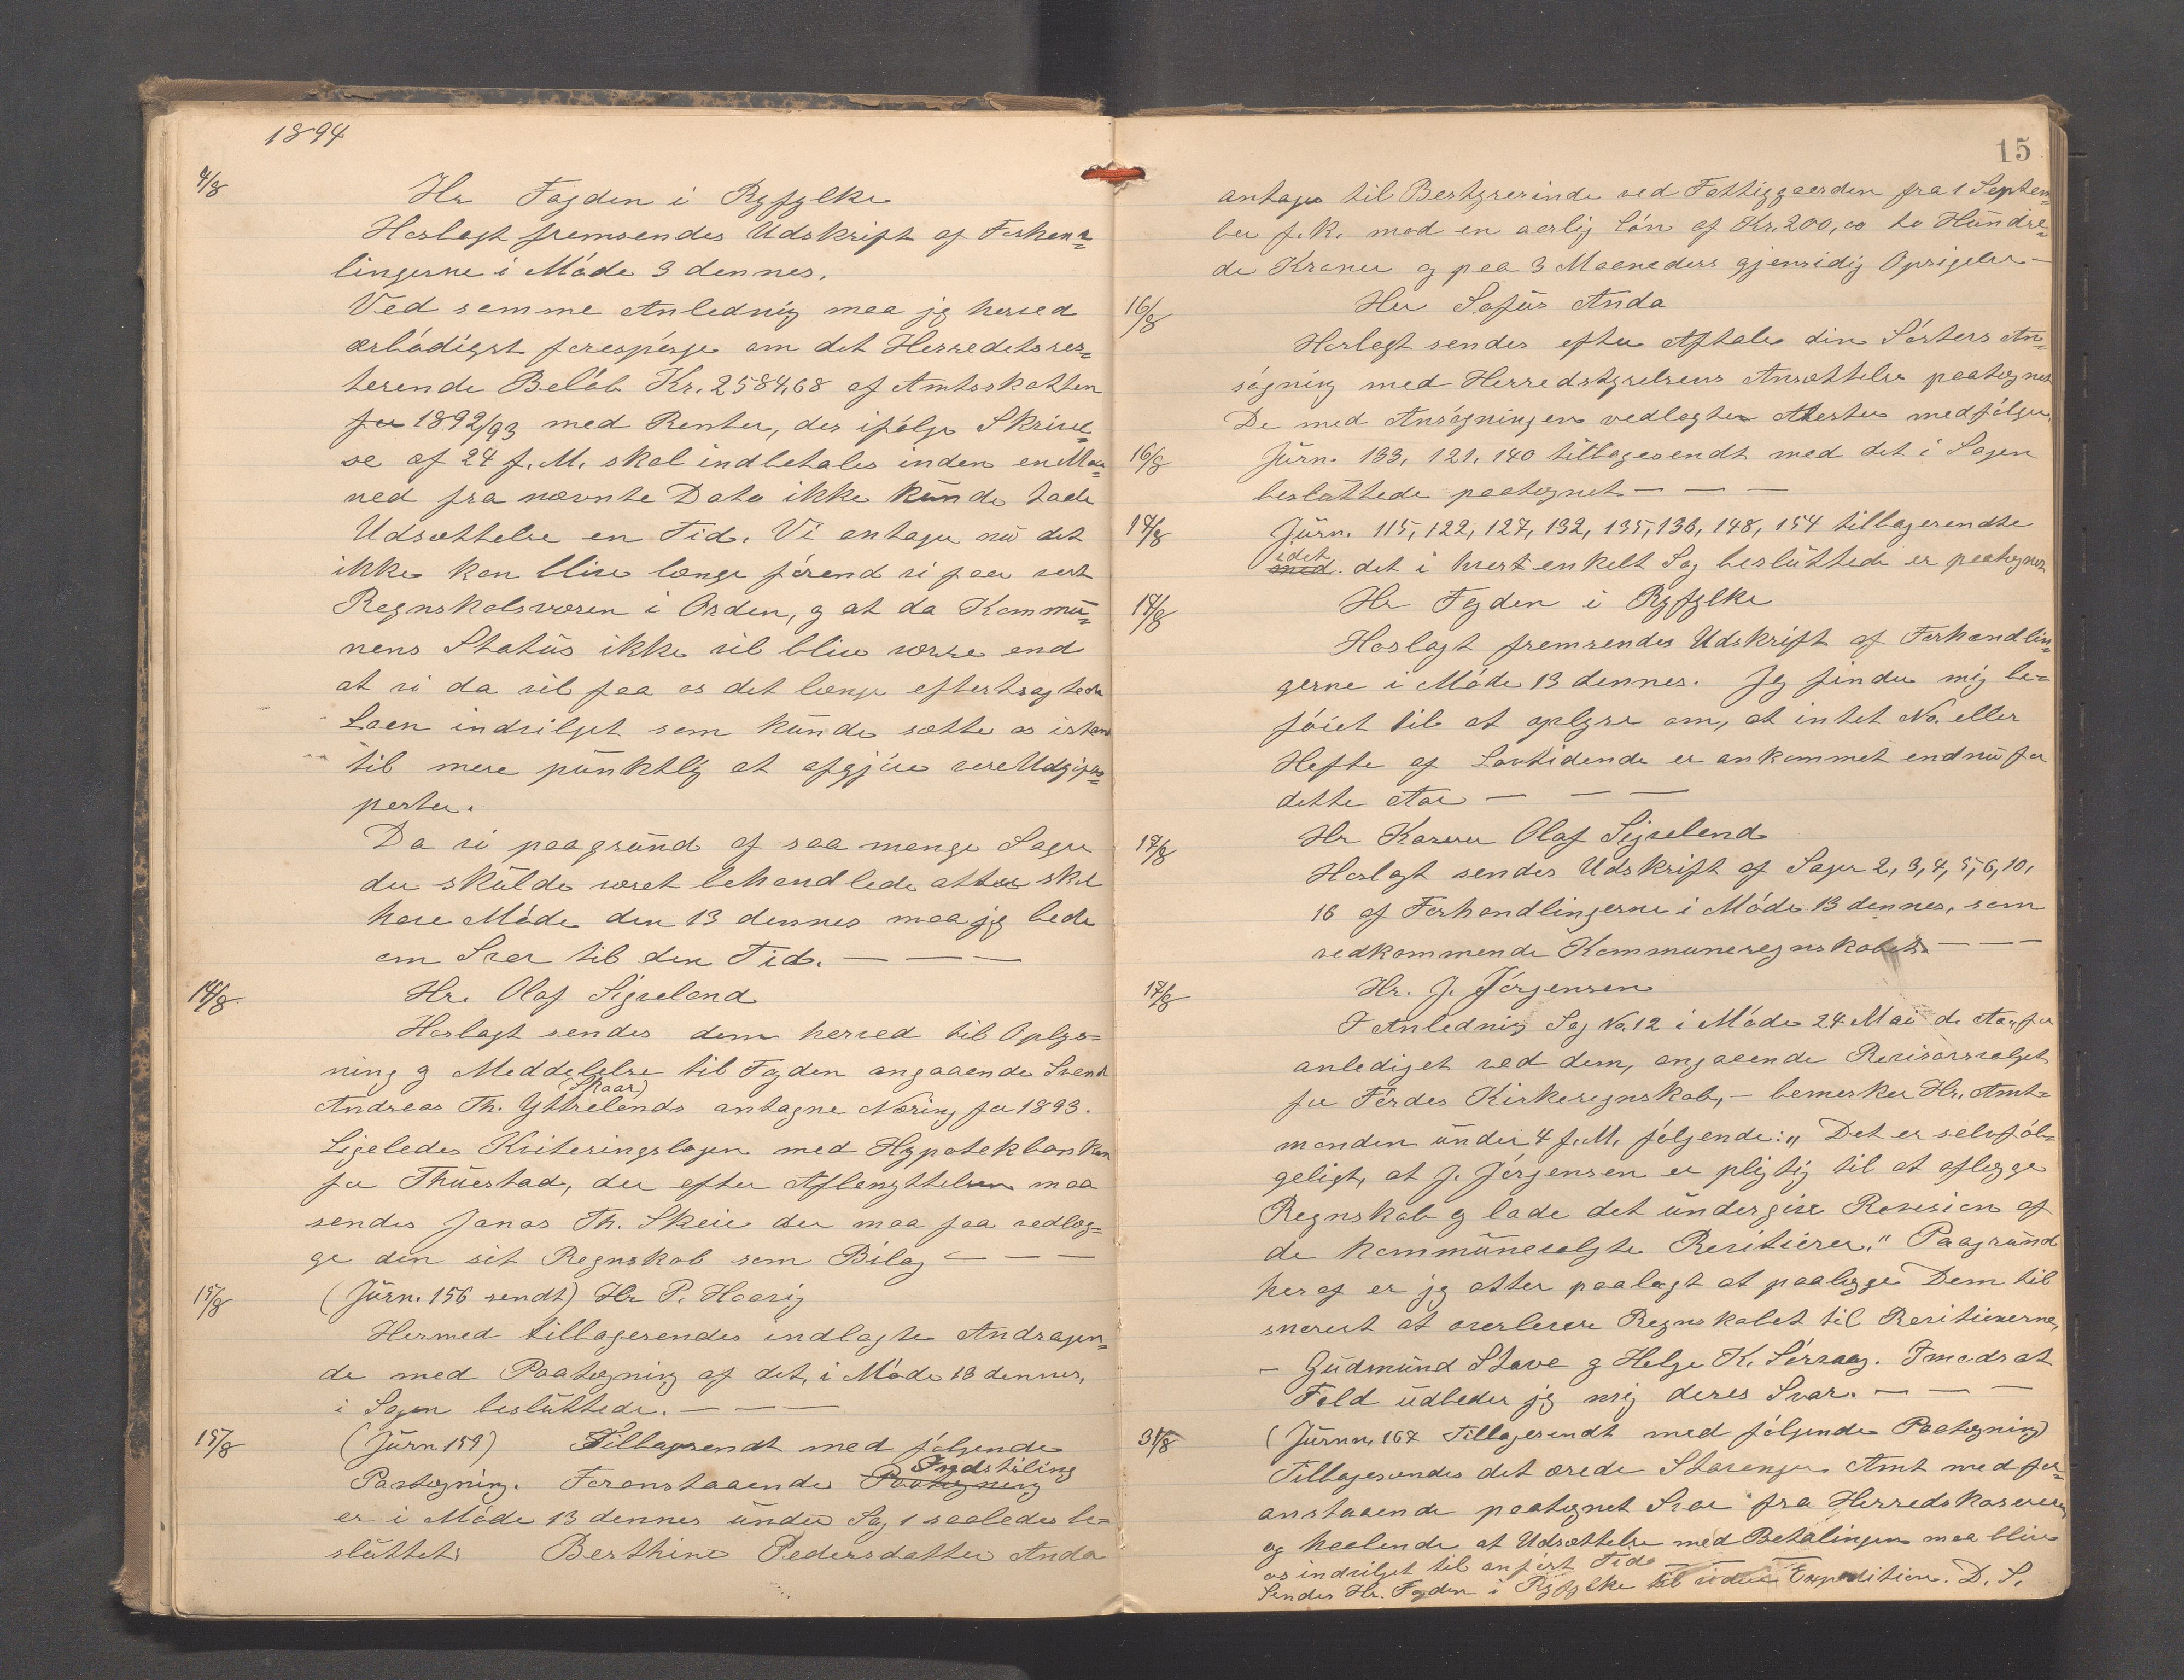 1894
4/8
Hr Fogden i Ryfylke
Hoslagt fremsendes Udskrift af Forhand=
lingerne i Møde 3 dennes.
Ved samme Anledning maa jeg herved
ærbødigst forespørge om det Herredets res=
terende Beløb Kr. 2584,68 af Amtsskatten
for 1892/93 med Renter, der ifølge Skrivel=
se af 24 f. M. skal indbetales inden en Maa=
ned fra nævnte Dato ikke kunde taale
Udsættelse en Tid. Vi antager nu det
ikke kan blive længe førend vi faar vort
Regnskabsvæsen i Orden, og at da Kommu=
nens Status ikke vil blive værre end
at vi da vil faa os det længe eftertragtede
Laan indvilget som kunde sætte os istand
til mere punktlig at afgjøre vore Udgifts=
poster.
Da vi paagrund af saa mange Sager
der skulde været behandlede atter skal
have Møde den 13 dennes maa jeg bede
om Svar til den Tid. — — —
14/8
Hr. Olaf Sigveland
Hoslagt sendes dem herved til Oplys=
ning og Meddelelse til Fogden angaaende Svend
(Skaar)
Andreas Th. Yttrelands antagne Næring for 1893.
Ligeledes Kviteringsbogen med Hypotekbanken
for Thuestad, der efter Afbenyttelsen maa
sendes Jonas Th. Skeie der maa faa vedlæg=
ge den sit Regnskab som Bilag — — —
15/8
(Jurn. 156 sendt) Hr P. Haavig
Hermed tilbagesendes indlagte Andragen=
de med Paategning af det, i Møde 13 dennes,
i Sagen besluttede. — — —
15/8
(Jurn 159) Tilbagesendt med følgende
Indstiling
Paategning. Foranstaaende Paategning
er i Møde 13 dennes under Sag 1 saaledes be=
sluttet: Berthine Pedersdatter Anda
15
antages til Bestyrerinde ved Fattiggaarden fra 1 Septem=
ber f.k. mod en aarlig Løn af Kr. 200,00 to Hundre=
de Kroner og paa 3 Maaneders gjensidig Opsigelse —
16/8
Herr Sofus Anda
Hoslagt sendes efter Aftale din Søsters An=
søgning med Herredstyrelsens Ansættelse paategnet
De med Ansøgningen vedlagte Attester medfølger.
16/8
Jurn. 133, 121, 140 tilbagesendt med det i Sagen
besluttede paategnet — — —
17/8
Jurn. 115, 122, 127, 132, 135, 136, 148, 154 tilbagesendte
idet
med det i hvert enkelt Sag besluttede er paategnet
18/8
Hr Fogden i Ryfylke
Hoslagt fremsendes Udskrift af Forhandlin=
gerne i Møde 13 dennes. Jeg finder mig be=
føiet til at oplyse om, at intet No. eller
Hefte af Lovtidende er ankommet endnu for
dette Aar — — —
17/8
Hr Kaserer Olaf Sigveland
Hoslagt sendes Udskrift af Sager 2, 3, 4, 5, 6, 10,
16 af Forhandlingerne i Møde 13 dennes, som
vedkommende Kommuneregnskabet — — —
17/8
Hr. J. Jørgensen
I Anledning Sag No. 12 i Møde 24 Mai d. Aa. for
anlediget ved dem, angaaende Revisorsvalget
for Førdes Kirkeregnskab, — bemerker Hr. Amt=
manden under 4 f. M. følgende: „Det er selvføl=
geligt, at J. Jørgensen er pligtig til at aflægge
Regnskab og lade det undergive Revision af
de kommunevalgte Revisorer." Paagrund
heraf er jeg atter paalagt at paalægge Dem til
snarest at overlevere Regnskabet til Revisorerne,
— Gudmund Stave og Helge K. Sørraag. I modsat
Fald udbeder jeg mig deres Svar. — — —
31/8
(Jurn. 167 Tilbagesendt med følgende Paategning)
Tilbagesendes det ærede Stavanger Amt med for=
anstaaende paategnet Svar fra Herredskasereren
og haabende at Udsættelse med Betalingen maa blive
os indvilget til anført Tid — — —
Sendes Hr. Fogden i Ryfylke til videre Expedition. D. S.